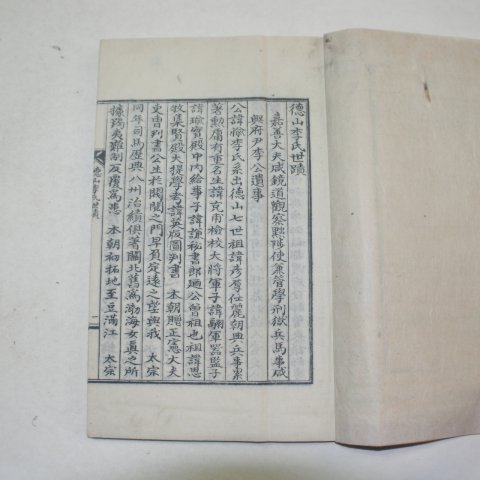 德山李氏世蹟
嘉善大夫咸鏡道觀察黜陟使兼管學刑獄兵馬事咸
興府尹李公遺事
公諱 李氏系出德山七世祖諱 仕麗朝典兵事累
著勳庸有重名生諱克甫檢校大將軍子諱 軍器監子
諱 寶殿中內給事子諱謙秘書郎 公曾祖也祖諱思
牧集賢殿大提學考諱英版圖判書 本朝贈正憲大夫
吏曹判書公生於閥閱之門早負定遠之望與我 太宗
同年司馬歷典八州治績俱著關北舊爲渤海女眞之所
據獷夷難制反覆爲患 本朝初拓地至豆滿江 太宗
德山李氏世蹟
一